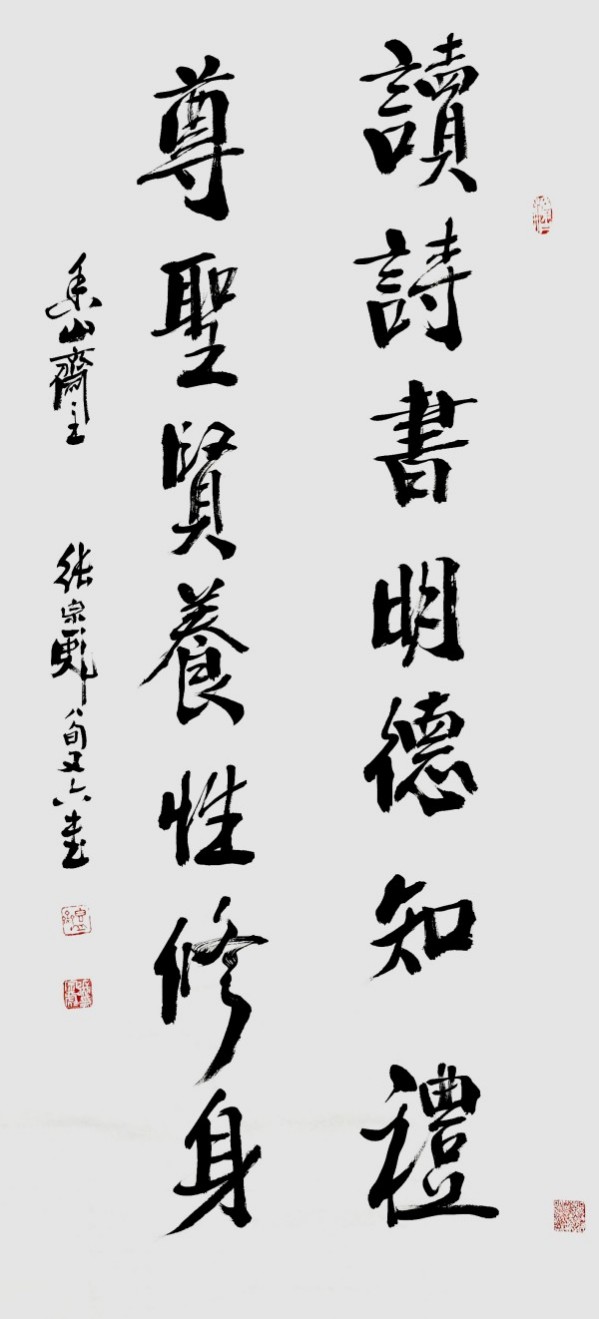 讀詩書明德知禮
尊聖賢養性修身
山齋主
张宗彪八旬又六書